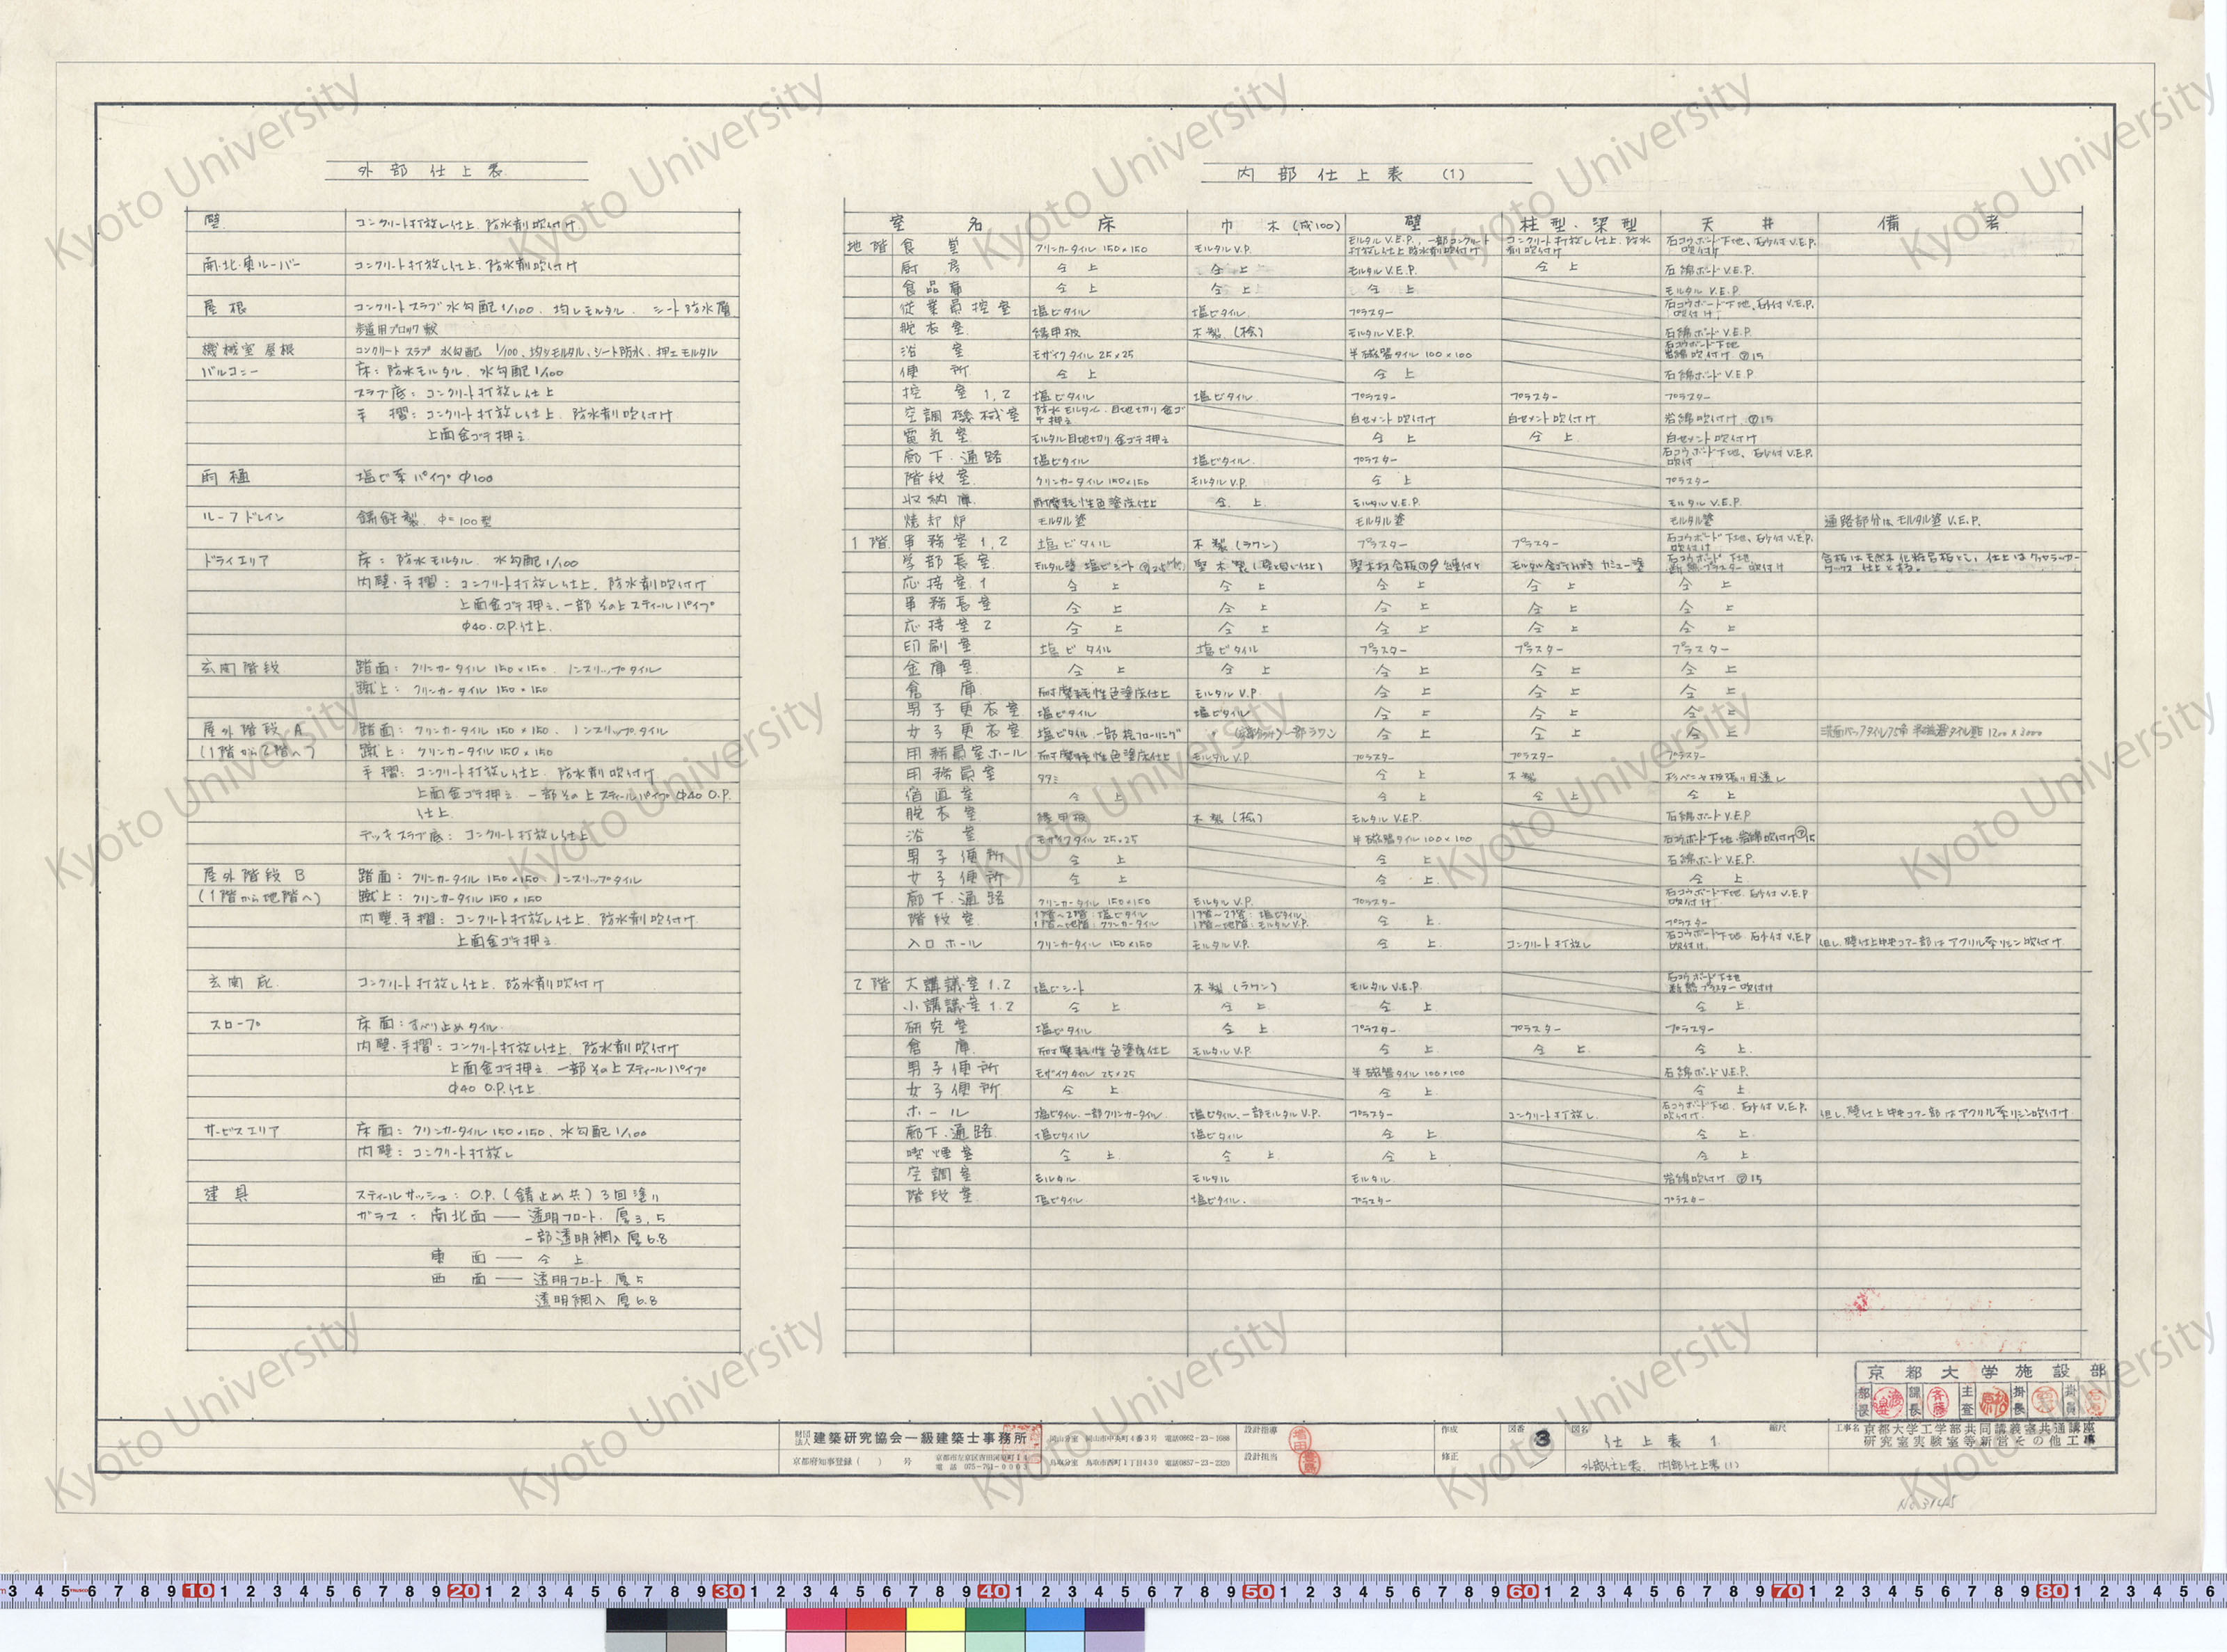 外部仕上表
壁 コンクリート打放し仕上、防水剤吹付け
南・北・東ルーバー コンクリート打放し仕上、防水剤吹付け
屋根 コンクリートスラブ 水勾配 1/100、均しモルタル、シート防水層
歩道用ブロック敷
機械室屋根 コンクリートスラブ 水勾配 1/100、均シモルタル、シート防水、押エモルタル
バルコニー 床：防水モルタル、水勾配 1/100
スラブ底：コンクリート打放し仕上
手摺：コンクリート打放し仕上、防水剤吹付け
上面金ゴテ押え
雨樋 塩ビ系パイプ φ100
ルーフドレイン 鋳鉄製、φ=100型
ドライエリア 床：防水モルタル、水勾配 1/100
内壁・手摺：コンクリート打放し仕上、防水剤吹付け
上面金ゴテ押え、一部その上スティールパイプ
φ40.O.P.仕上
玄関階段 踏面：クリンカータイル 150×150、ノンスリップタイル
蹴上：クリンカータイル 150×150
屋外階段 A 踏面：クリンカータイル 150×150、ノンスリップタイル
(1階から2階へ) 蹴上：クリンカータイル 150×150
手摺：コンクリート打放し仕上、防水剤吹付け
上面金ゴテ押え、一部その上スティールパイプ φ40 O.P.
仕上
デッキスラブ底：コンクリート打放し仕上
屋外階段 B 踏面：クリンカータイル 150×150、ノンスリップタイル
(1階から地階へ) 蹴上：クリンカータイル 150×150
内壁・手摺：コンクリート打放し仕上、防水剤吹付け
上面金ゴテ押え
玄関庇 コンクリート打放し仕上、防水剤吹付け
スロープ 床面：すべり止めタイル
内壁・手摺：コンクリート打放し仕上、防水剤吹付け
上面金ゴテ押え、一部その上スティールパイプ
φ40 O.P.仕上
サービスエリア 床面：クリンカータイル 150×150、水勾配 1/100
内壁：コンクリート打放し
建具 スティールサッシュ：O.P.(錆止め共) 3回塗り
ガラス：南北面 — 透明フロート 厚3, 5
一部透明網入 厚6.8
東面 — 仝上
西面 — 透明フロート 厚5
透明網入 厚6.8
内部仕上表 (1)
室名 床 巾木(成100) 壁 柱型・梁型 天井 備考
地階 食堂 クリンカータイル 150×150 モルタル V.P. モルタル V.E.P.、一部コンクリート打放し仕上防水剤吹付け コンクリート打放し仕上、防水剤吹付け 石コウボード下地、石ウ付 V.E.P.吹付け
厨房 仝上 仝上 モルタル V.E.P. 仝上 石綿ボード V.E.P.
食品庫 仝上 仝上 仝上 モルタル V.E.P
従業員控室 塩ビタイル 塩ビタイル プラスター 石コウボード下地、石ウ付 V.E.P.吹付け
脱衣室 縁甲板 木製(桧) モルタル V.E.P 石綿ボード V.E.P.
浴室 モザイクタイル 25×25 半磁器タイル 100×100 石コウボード下地 岩綿吹付け ㋐15
便所 仝上 仝上 石綿ボード V.E.P
控室 1,2 塩ビタイル 塩ビタイル プラスター プラスター プラスター
空調機械室 防水モルタル、目地切り金ゴテ押え 白セメント吹付け 白セメント吹付け 岩綿吹付け ㋐15
電気室 モルタル目地切り金ゴテ押え 仝上 仝上 白セメント吹付け
廊下・通路 塩ビタイル 塩ビタイル プラスター 石コウボード下地、石ウ付 V.E.P.吹付
階段室 クリンカータイル 150×150 モルタル V.P. 仝上 プラスター
収納庫 耐摩耗性色塗床仕上 仝上 モルタル V.E.P. モルタル V.E.P.
焼却炉 モルタル塗 モルタル塗 モルタル塗 通路部分は、モルタル塗 V.E.P.
1階 事務室 1,2 塩ビタイル 木製(ラワン) プラスター プラスター 石コウボード下地、石ウ付 V.E.P.吹付け
学部長室 モルタル塗 塩ビシート 堅木製 堅木材合板 石コウボード下地 断熱プラスター吹付け
応接室 1 仝上 仝上 仝上 仝上 仝上
事務長室 仝上 仝上 仝上 仝上 仝上
応接室 2 仝上 仝上 仝上 仝上 仝上
印刷室 塩ビタイル 塩ビタイル プラスター プラスター プラスター
金庫室 仝上 仝上 仝上 仝上 仝上
倉庫 耐摩耗性色塗床仕上 モルタル V.P. 仝上 仝上 仝上
男子更衣室 塩ビタイル 塩ビタイル 仝上 仝上 仝上
女子更衣室 塩ビタイル、一部桧フローリング 一部ラワン 仝上 仝上 仝上
用務員室ホール 耐摩耗性色塗床仕上 モルタル V.P. プラスター プラスター プラスター
用務員室 タタミ 仝上 木製 杉ベニヤ板張り目透し
宿直室 仝上 仝上 仝上 仝上
脱衣室 縁甲板 木製(桧) モルタル V.E.P. 石綿ボード V.E.P
浴室 モザイクタイル 25×25 半磁器タイル 100×100 石コウボード下地・岩綿吹付け ㋐15
男子便所 仝上 仝上 石綿ボード V.E.P.
女子便所 仝上 仝上 仝上
廊下・通路 クリンカータイル 150×150 モルタル V.P. プラスター 石コウボード下地、石ウ付 V.E.P吹付け
階段室 1階〜2階：塩ビタイル 1階〜地階：クリンカータイル 1階〜2階：塩ビタイル 1階〜地階：モルタル V.P. 仝上 プラスター
入口ホール クリンカータイル 150×150 モルタル V.P. 仝上 コンクリート打放し 石コウボード下地、石ウ付 V.E.P吹付け 但し、壁仕上中央コアー部はアクリル系リシン吹付け
2階 大講議室 1.2 塩ビシート 木製(ラワン) モルタル V.E.P. 石コウボード下地 断熱プラスター吹付け
小講議室 1.2 仝上 仝上 仝上 仝上
研究室 塩ビタイル 仝上 プラスター プラスター プラスター
倉庫 耐摩耗性色塗床仕上 モルタル V.P. 仝上 仝上 仝上
男子便所 モザイクタイル 25×25 半磁器タイル 100×100 石綿ボード V.E.P.
女子便所 仝上 仝上 仝上
ホール 塩ビタイル、一部クリンカータイル 塩ビタイル、一部モルタル V.P. プラスター コンクリート打放し 石コウボード下地、石ウ付 V.E.P.吹付け 但し、壁仕上中央コアー部はアクリル系リシン吹付け
廊下・通路 塩ビタイル 塩ビタイル 仝上 仝上
喫煙室 仝上 仝上 仝上 仝上
空調室 モルタル モルタル モルタル 岩綿吹付け ㋐15
階段室 塩ビタイル 塩ビタイル プラスター プラスター
京都大学施設部
部長 課長 主査 掛長 掛員
財団法人 建築研究協会一級建築士事務所
京都府知事登録( )号
電話 075-761-0005
岡山分室 岡山市中央町4番3号 電話0862-23-1688
鳥取分室 鳥取市西町1丁目430 電話0857-23-2329
設計指導
設計担当
作成
修正
図番 3
図名 仕上表 1
外部仕上表、内部仕上表(1)
縮尺
工事名 京都大学工学部共同講義室共通講座
研究室実験室等新営その他工事
No.3145
Kyoto University